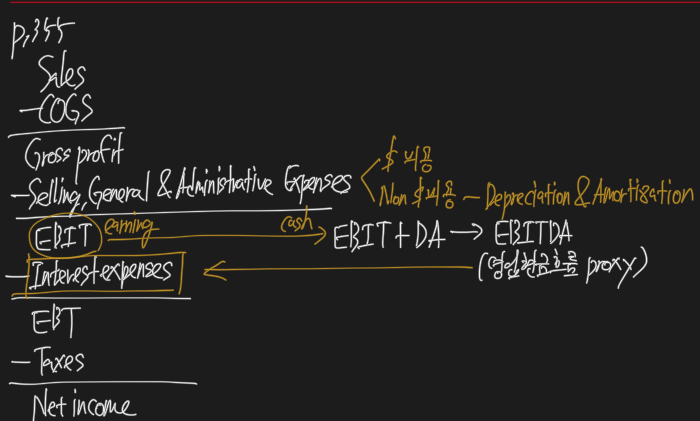 p.355
Sales
-COGS
Gross profit
-Selling, General & Administrative Expenses
$ 비용
Non $ 비용 - Depreciation & Amortization
EBIT earning cash EBIT+DA → EBITDA
- Interest expenses (영업현금흐름 proxy)
EBT
- Taxes
Net income